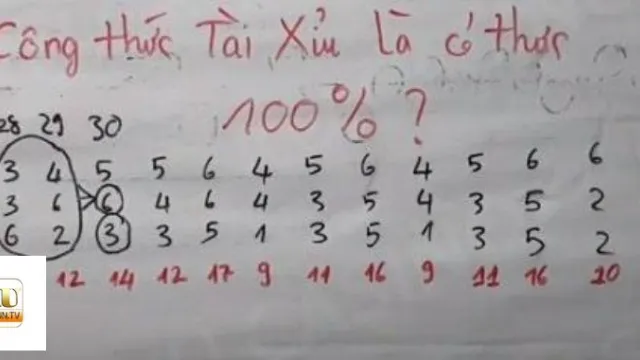 Công thức Tài Xỉu là có thực
100% ?
28 29 30
3 4 5 5 6 4 5 6 4 5 6 6
3 6 6 4 6 4 3 5 4 3 5 2
6 2 3 3 5 1 3 5 1 3 5 2
12 14 12 17 9 11 16 9 11 16 10